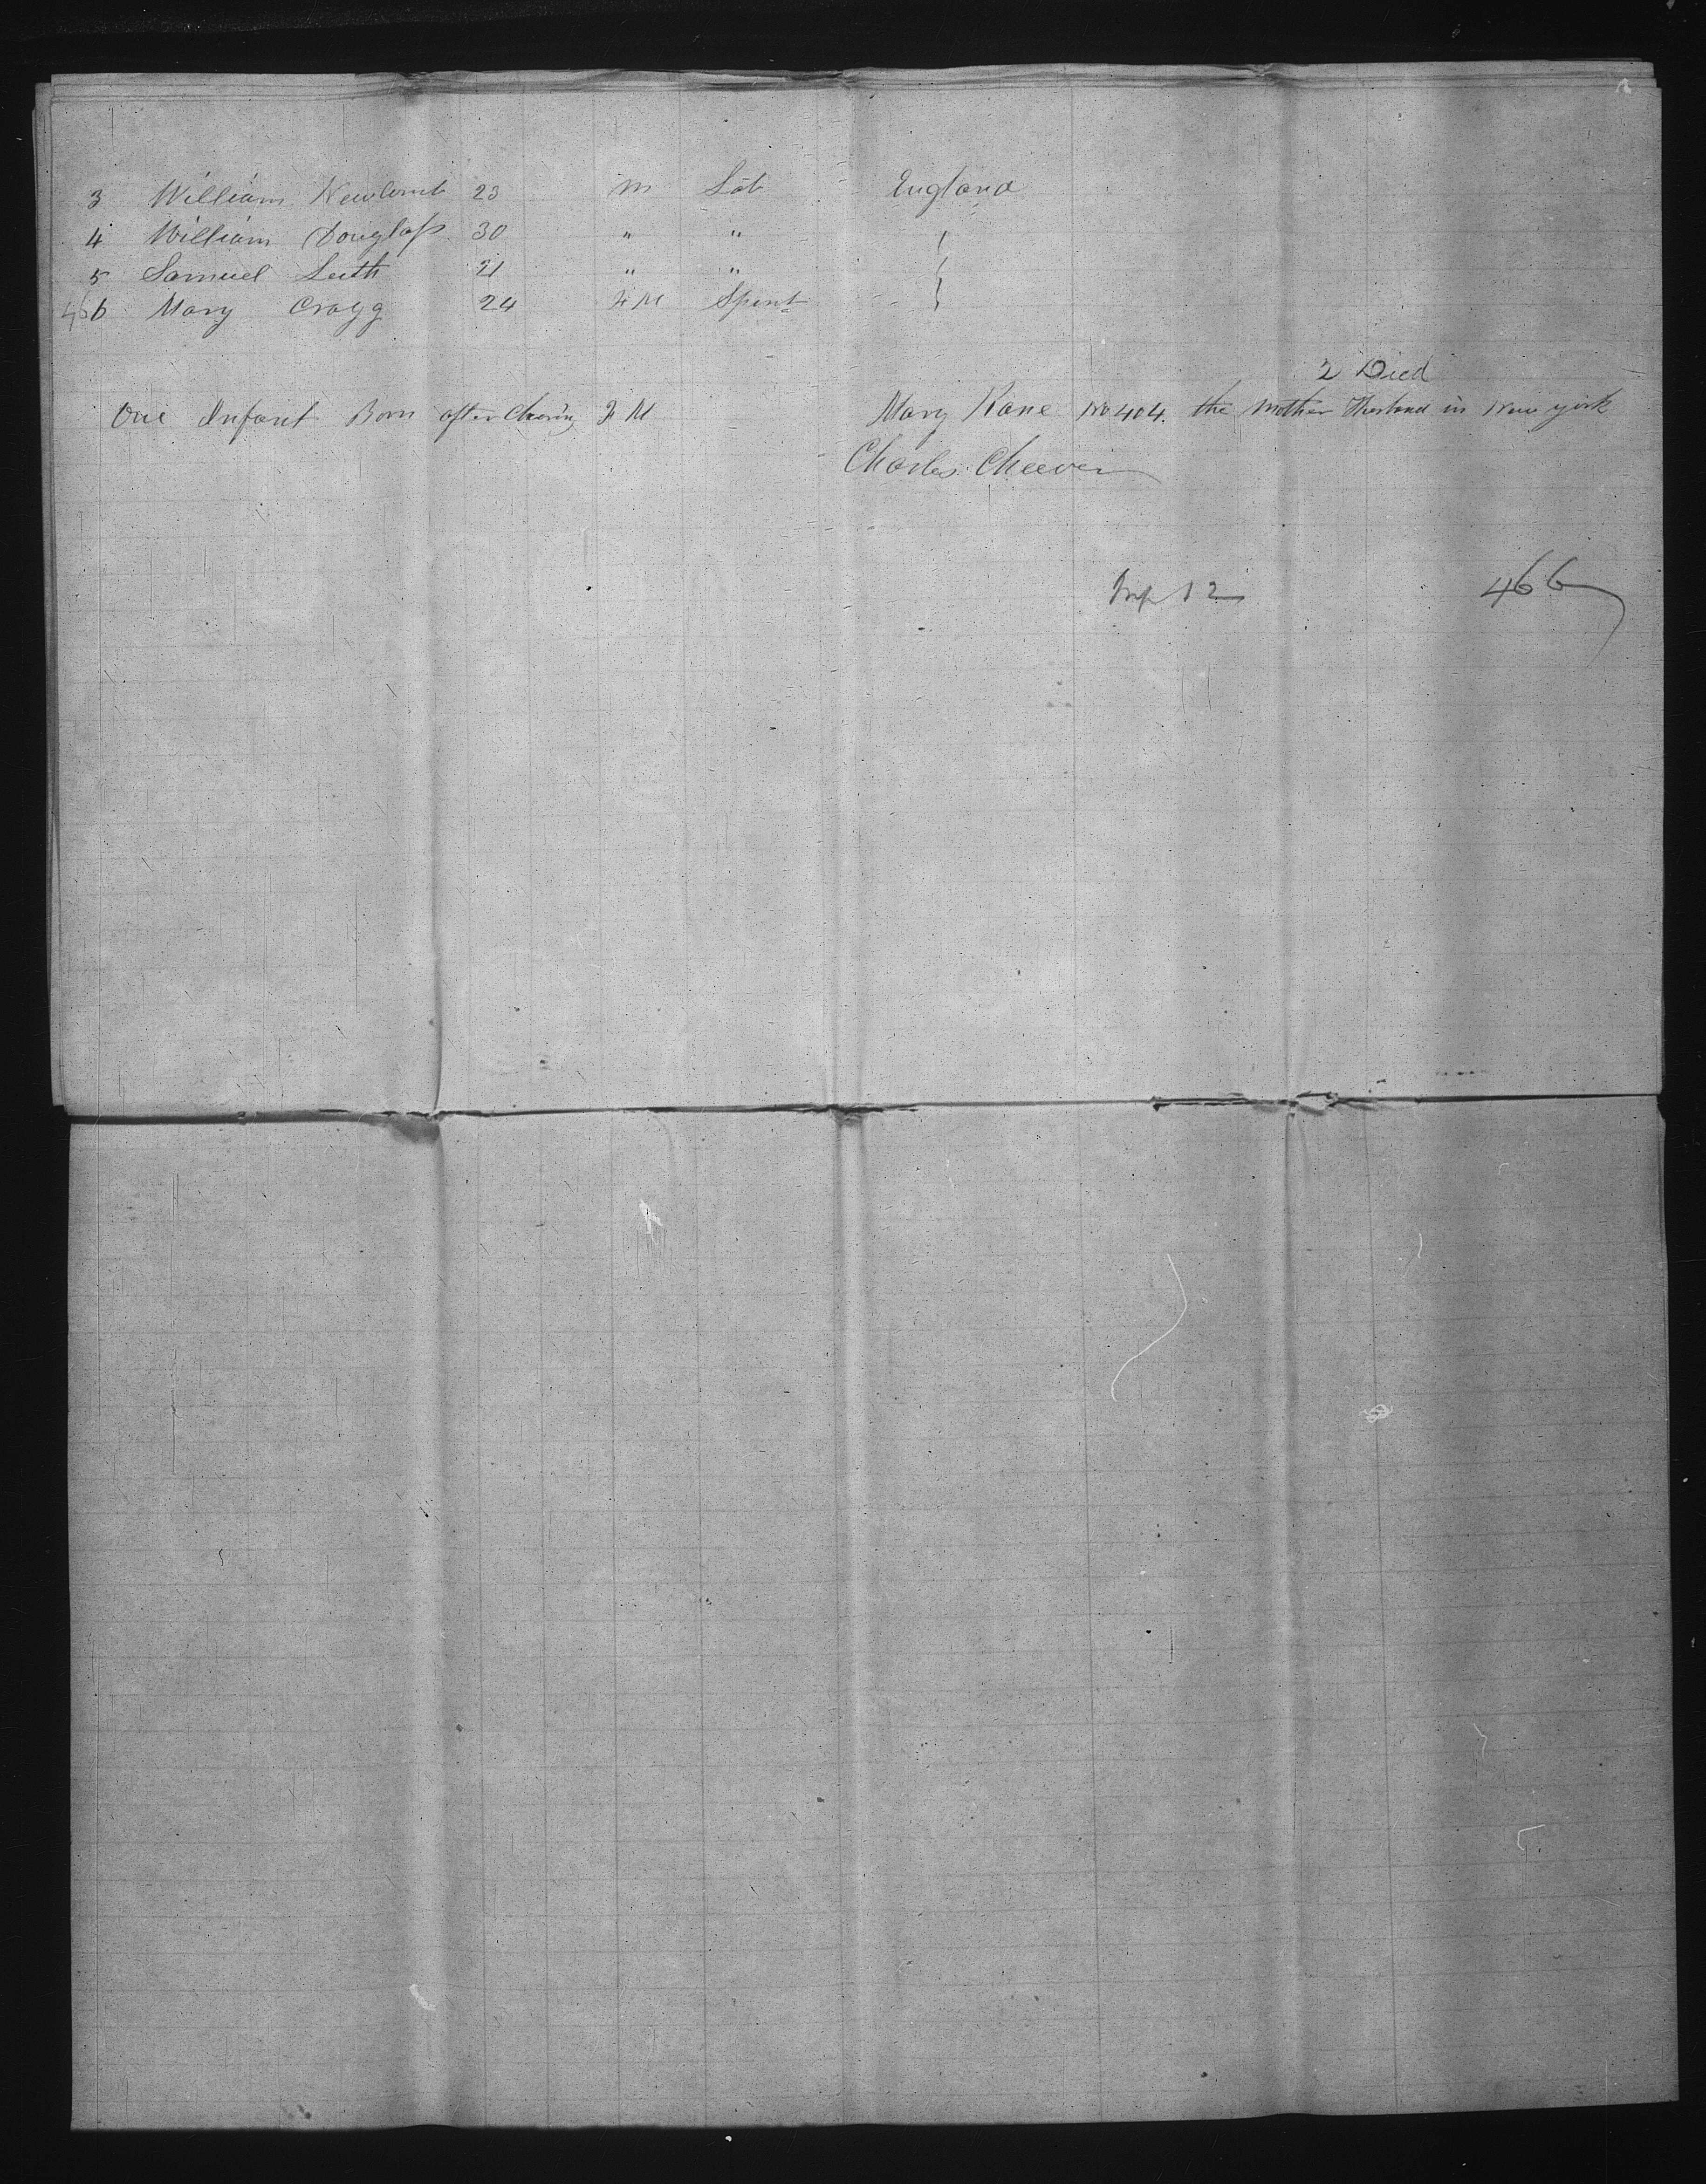 3 William Newcomb 23 M Lab England
4 William Douglass 30 " "
5 Samuel Leith 21 " "
466 Mary Cragg 24 F M Spinst
2 Died
One Infant Born after Clearing F M Mary Kane No 404. the Mother Husband in New york
Charles Cheever
12 466